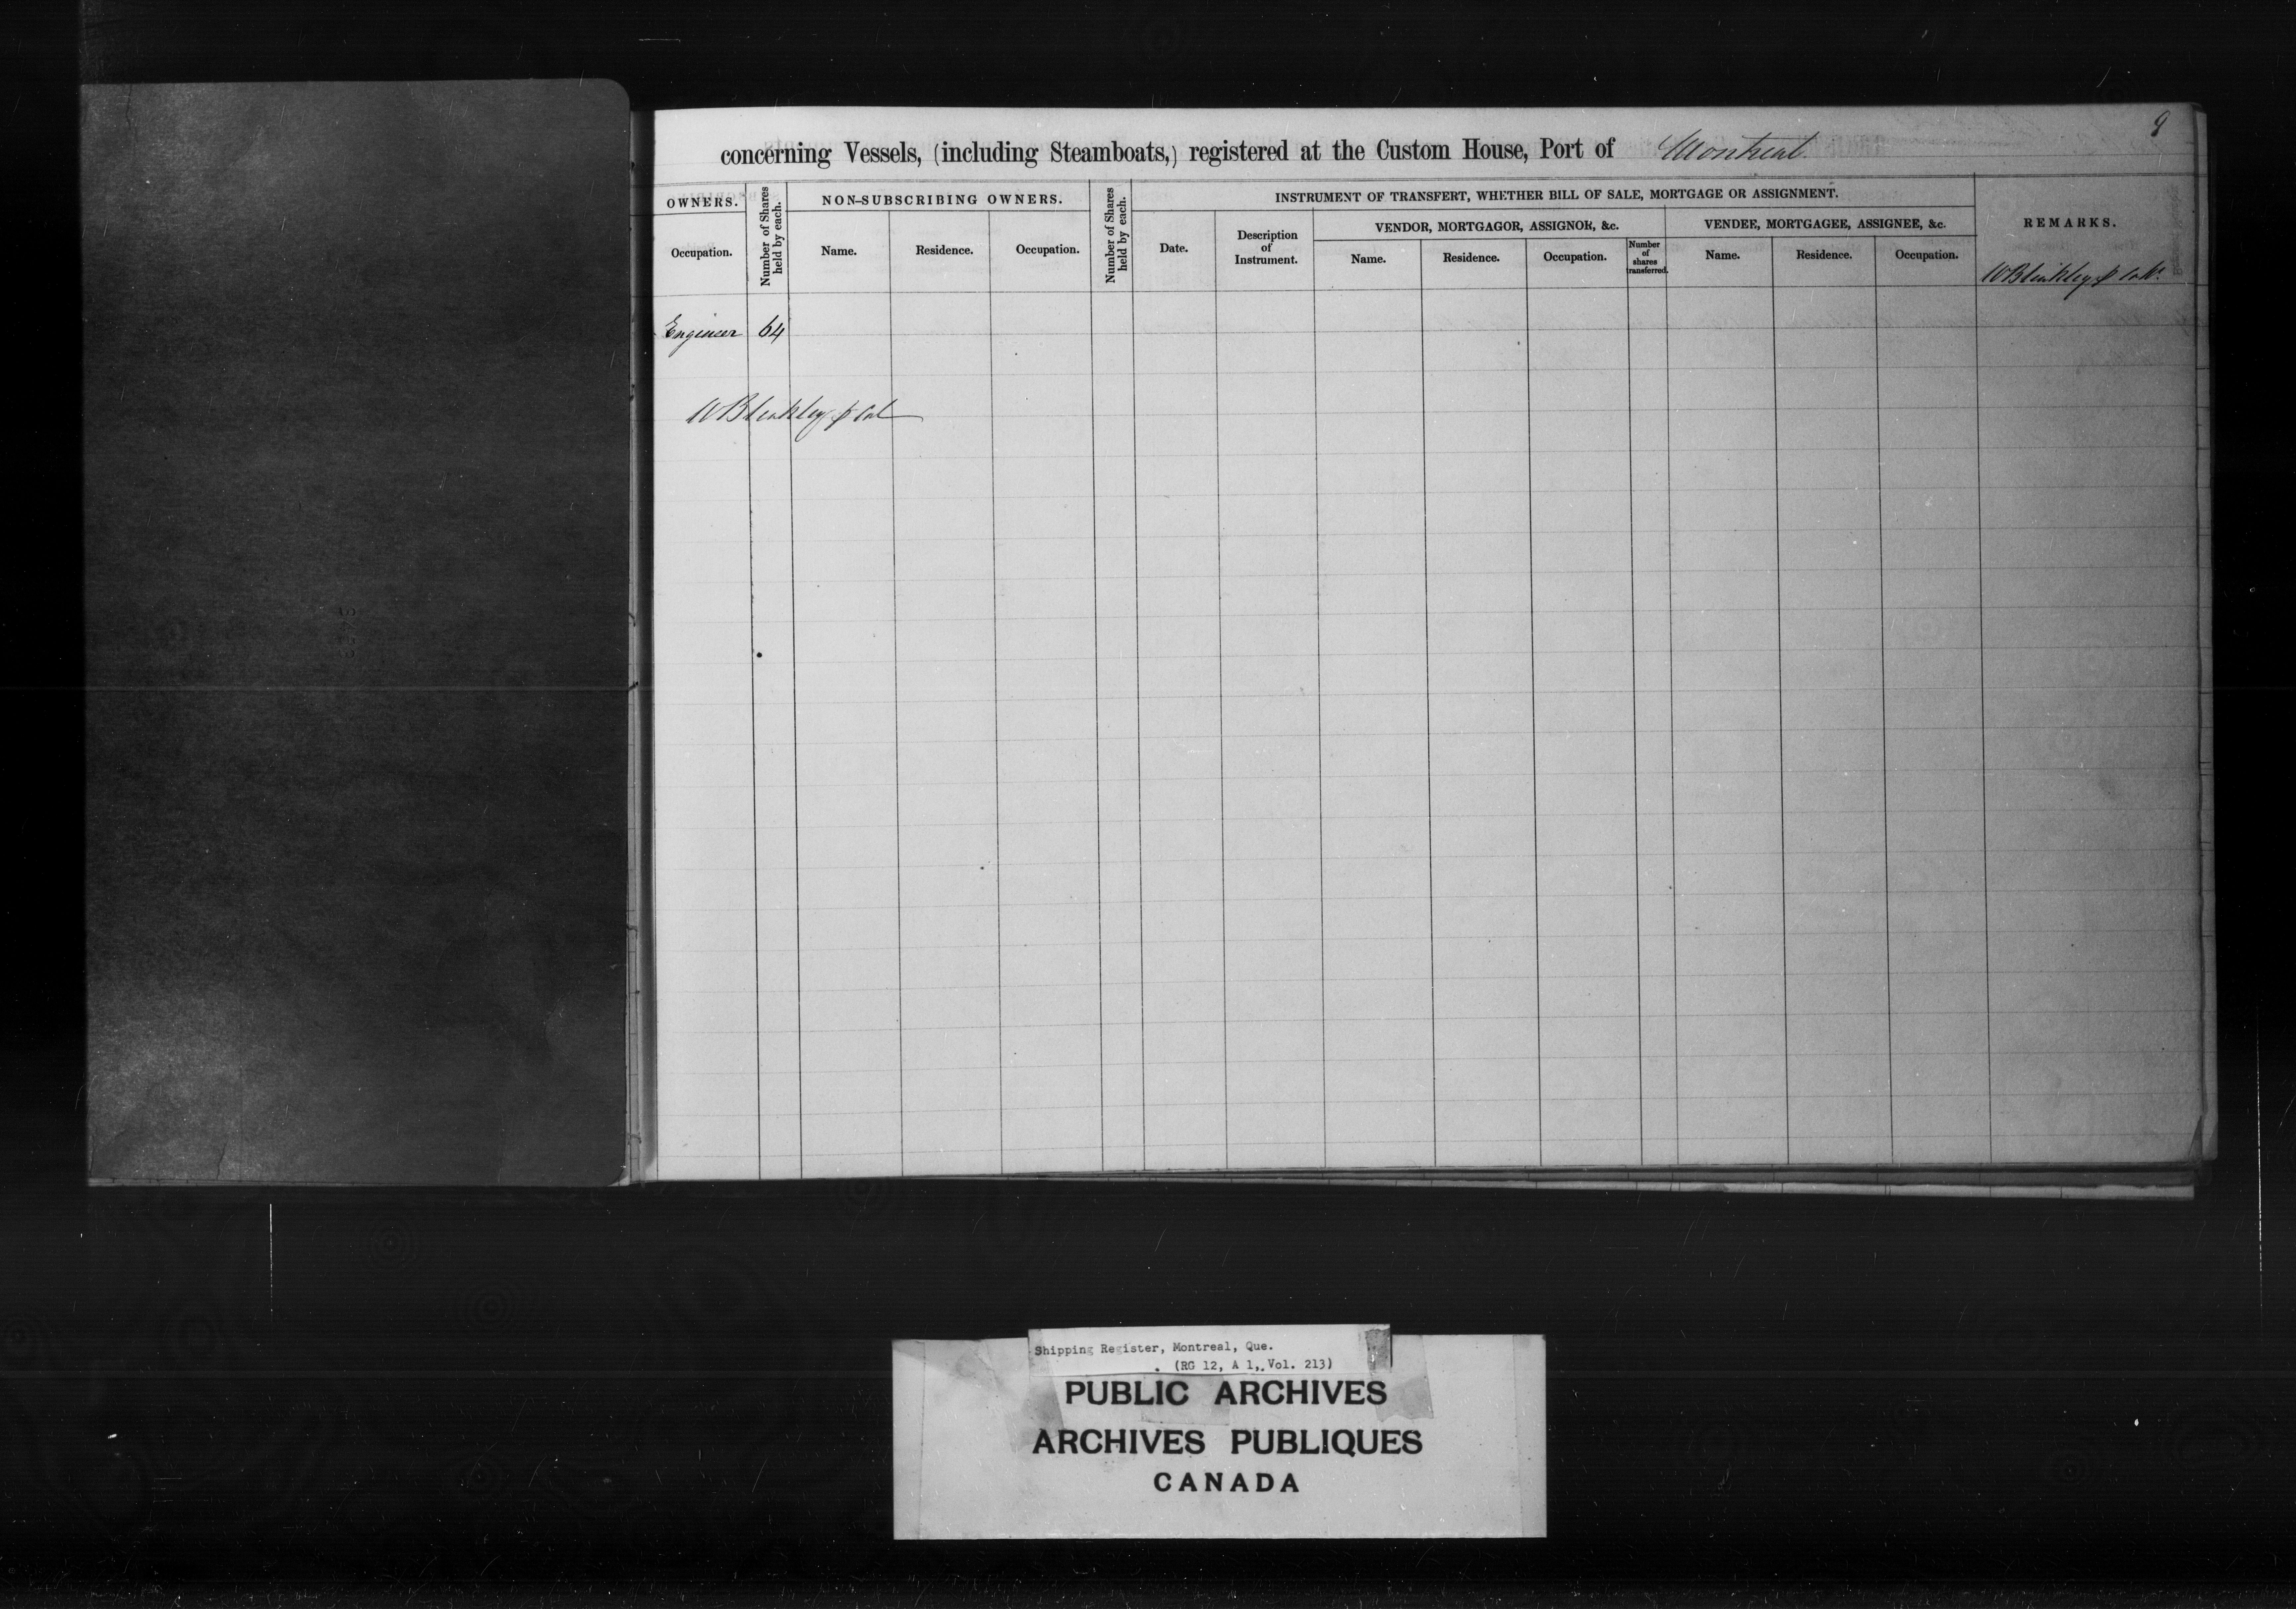 9
concerning Vessels, (including Steamboats,) registered at the Custom House, Port of Montreal
OWNERS.
Number of Shares held by each.
NON-SUBSCRIBING OWNERS.
Number of Shares held by each.
INSTRUMENT OF TRANSFERT, WHETHER BILL OF SALE, MORTGAGE OR ASSIGNMENT.
REMARKS.
VENDOR, MORTGAGOR, ASSIGNOR, &c.
VENDEE, MORTGAGEE, ASSIGNEE, &c.
Occupation.
Name.
Residence.
Occupation.
Date.
Description of Instrument.
Name.
Residence.
Occupation.
Number of shares transferred.
Name.
Residence.
Occupation.
W Bleakley
Engineer 64
W Bleakley
Shipping Register, Montreal, Que.
(RG 12, A 1, Vol. 213)
PUBLIC ARCHIVES
ARCHIVES PUBLIQUES
CANADA